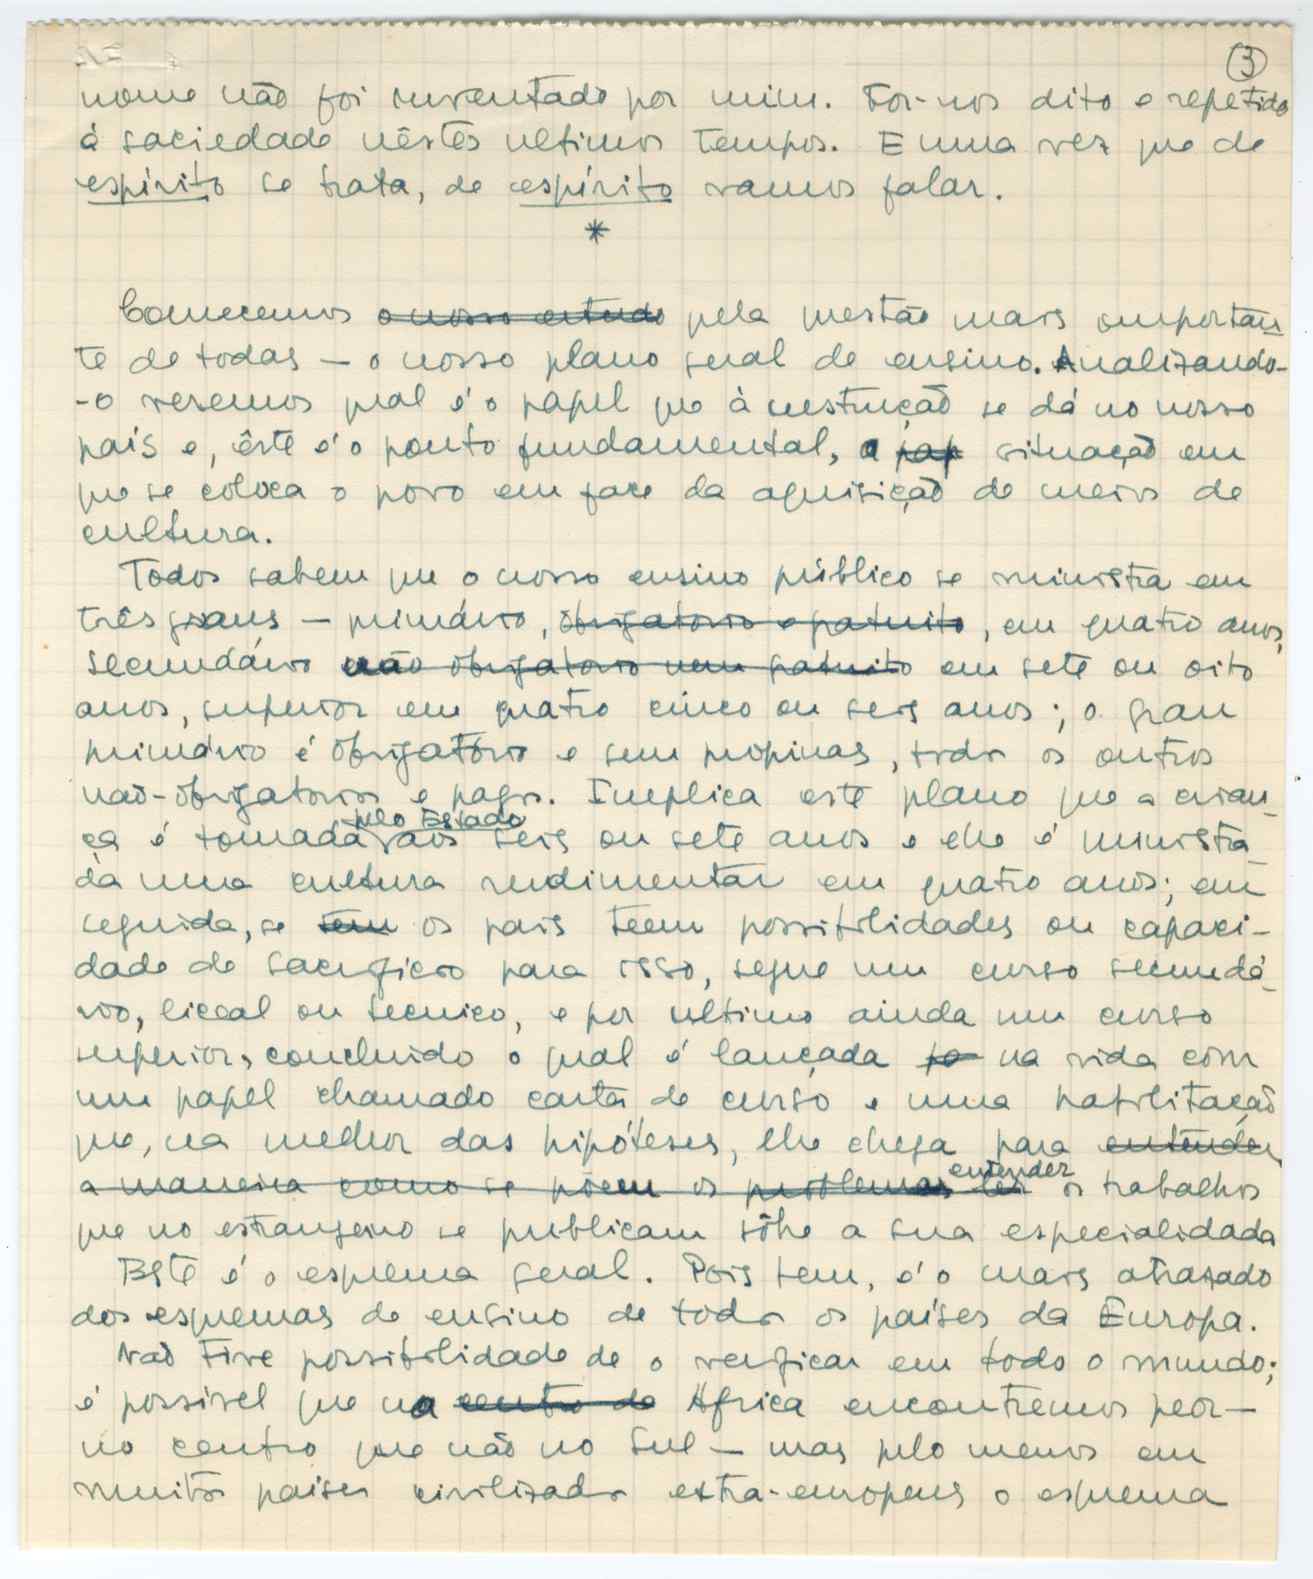 3
nome não foi inventado por mim. Foi-nos dito e repetido
á saciedade nêstes ultimos tempos. E uma vez que de
espírito se trata, de espírito vamos falar.
*
Comecemos o nosso estudo pela questão mais importan
te de todas — o nosso plano geral de ensino. Analizando-
-o veremos qual é o papel que à instrução se dá no nosso
país e, êste é o ponto fundamental, a pap situação em
que se coloca o povo em face da aquisição de meios de
cultura.
Todos sabem que o nosso ensino público se ministra em
três graus — primário, obrigatorio e gratuito, em quatro anos,
secundário não obrigatorio nem gratuito em sete ou oito
anos, superior em quatro cinco ou seis anos; o grau
primário é obrigatório e sem propinas, todos os outros
não-obrigatorios e pagos. Implica este plano que a crian_
ça é tomada pelo Estado aos seis ou sete anos e lhe é ministra_
da uma cultura rudimentar em quatro anos; em
seguida, se tem os pais teem possibilidades ou capaci-
dade de sacrificio para isso, segue um curso secundá_
rio, liceal ou tecnico, e por ultimo ainda um curso
superior, concluido o qual é lançada pa na vida com
um papel chamado carta de curso e uma habilitação
que, na melhor das hipóteses, lhe chega para entender
a maneira como se põem os problemas ler entender os trabalhos
que no estrangeiro se publicam sôbre a sua especialidade
Este é o esquema geral. Pois bem, é o mais atrazado
dos esquemas de ensino de todos os países da Europa.
Não tive possibilidade de o verificar em todo o mundo;
é possivel que na centro de Africa encontremos peor —
no centro que não no Sul — mas pelo menos em
muitos paises civilizados extra-europeus o esquema